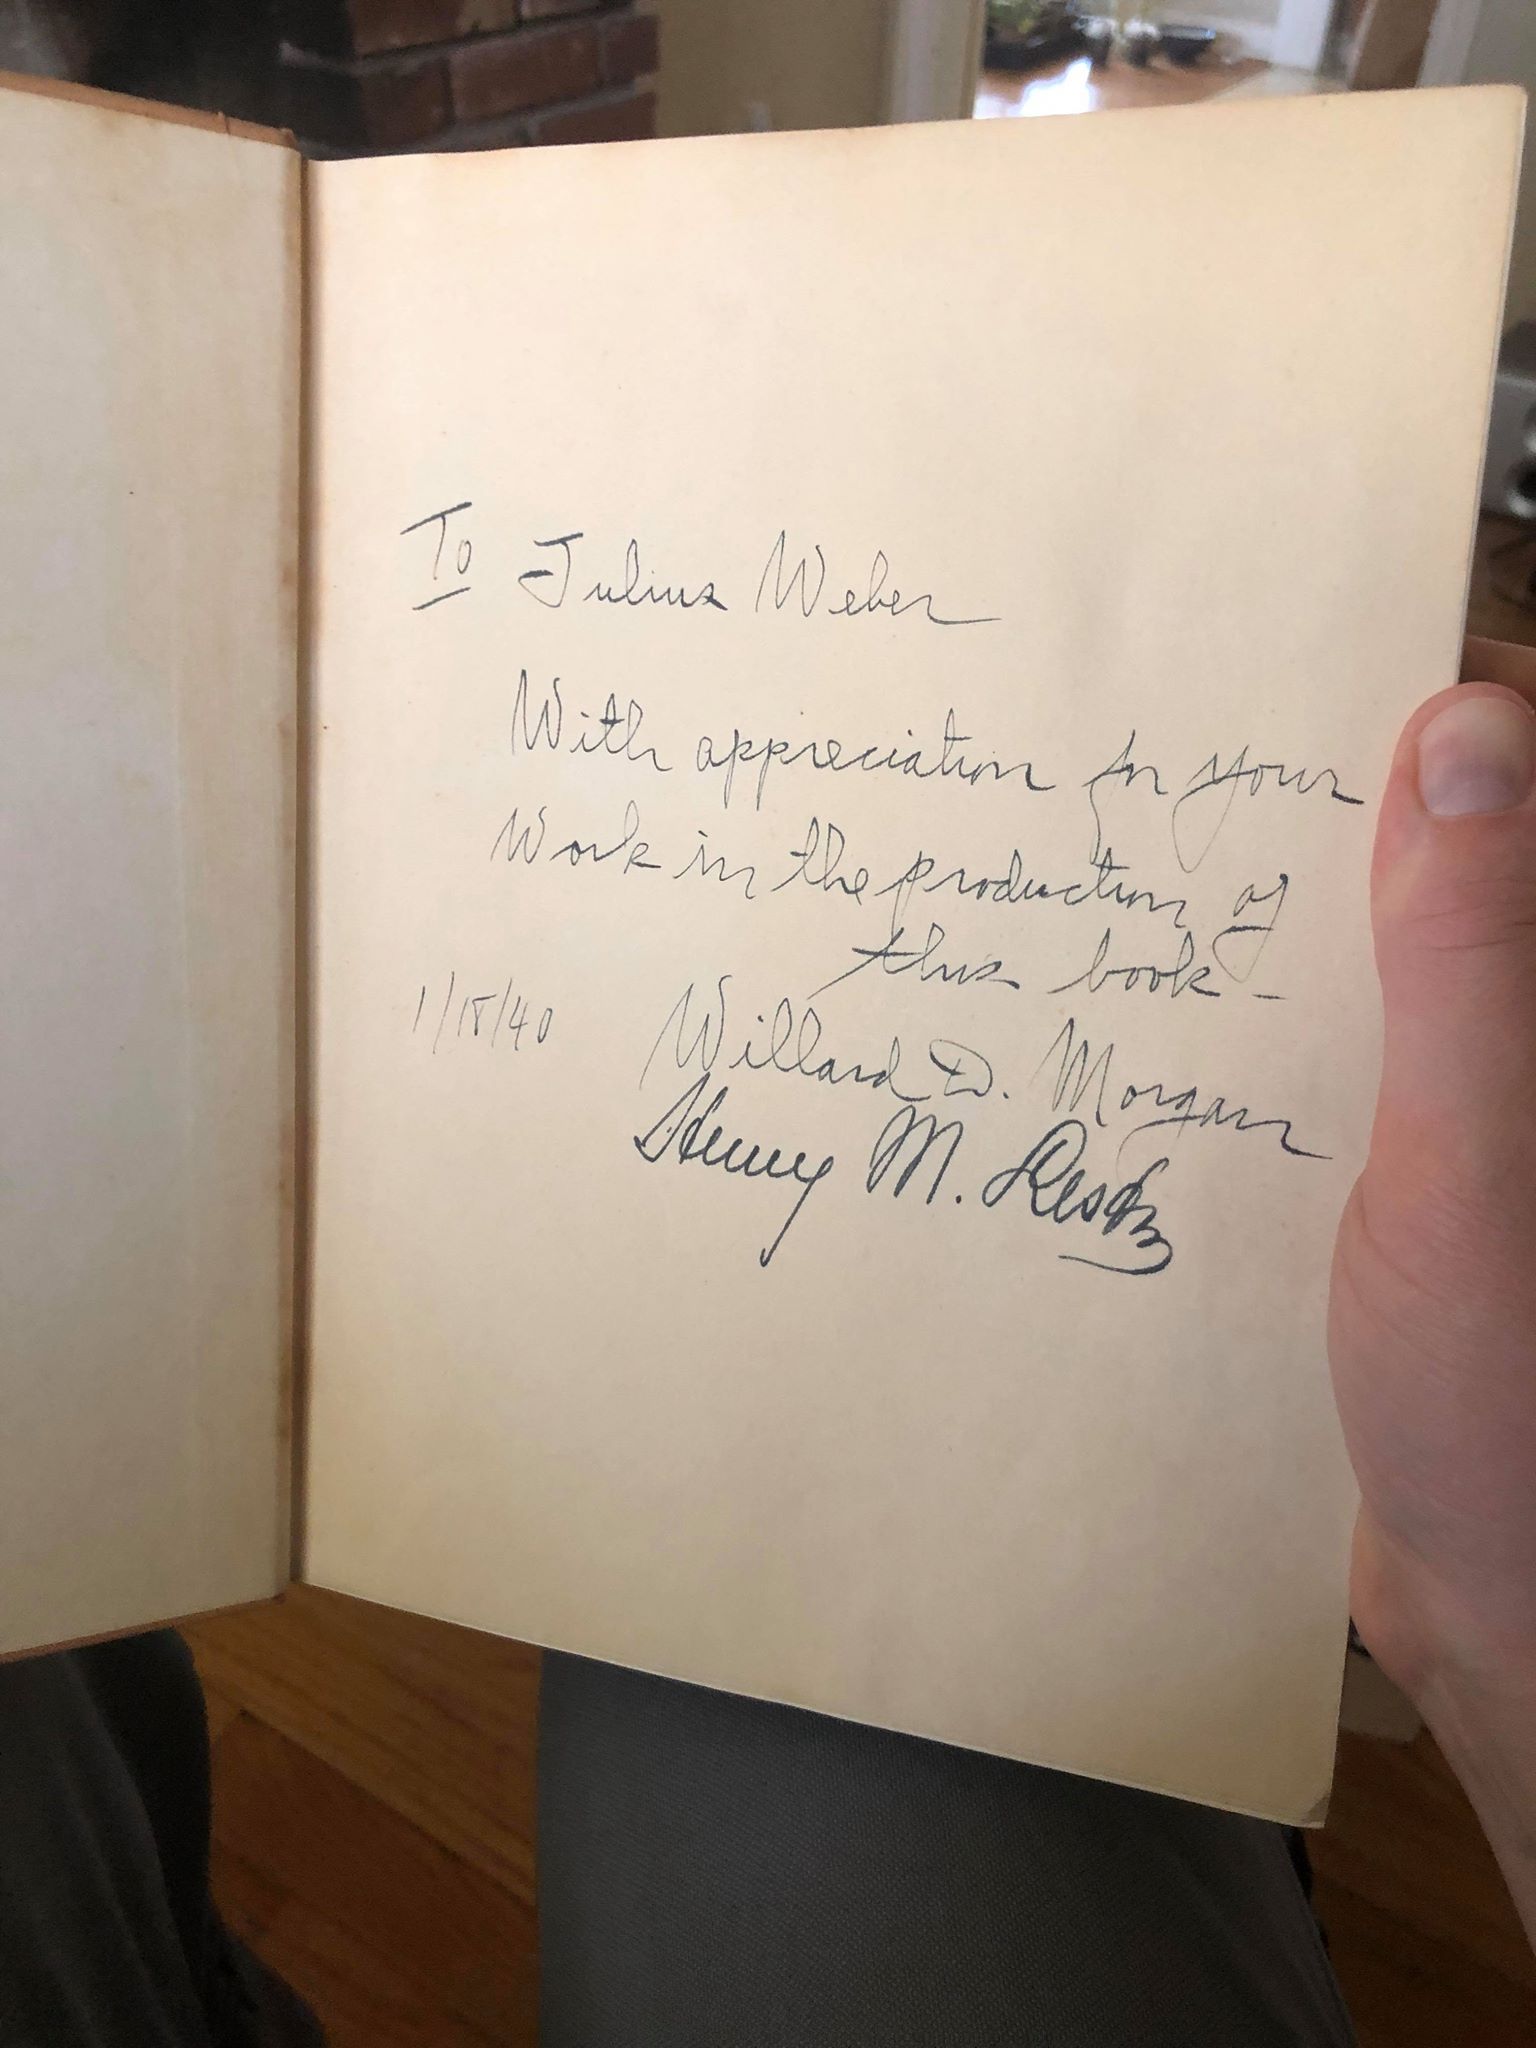 To Julius Weber
With appreciation for your
Work in the production of
this book -
1/18/40 Willard D. Morgan
Henry M. Lester